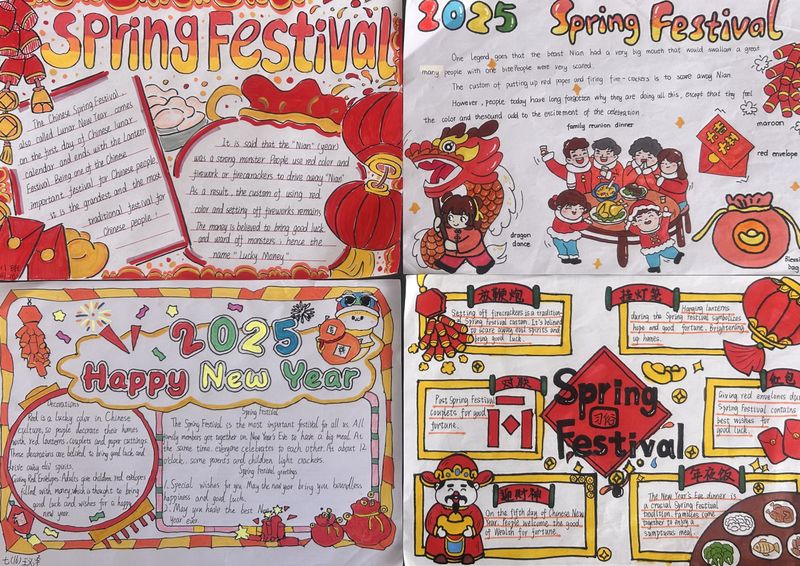 Spring Festival
The Chinese Spring Festival,
also called Lunar New Year, comes
on the first day of Chinese lunar
calendar and ends with the Lantern
Festival. Being one of the Chinese
important festival for Chinese people,
it is the grandest and the most
traditional festival for
Chinese people!
It is said that the "Nian" (year)
was a strong monster. People use red color and
firework or firecrackers to drive away "Nian"
As a result, the custom of using
red color and setting off fireworks remains
The money is believed to bring good luck
and ward off monsters, hence the
name "Lucky Money"
2025 Spring Festival
One Legend goes that the beast Nian had a very big mouth that would swallow a great
many people with one bite. People were very scared.
The custom of putting up red papes and firing fire-crackers is to scare away Nian.
However, people today have long forgotten why they are doing all this, except that they feel
the color and the sound add to the excitement of the celebration.
family reunion dinner
maroon
red envelope
dragon
dance
bag
2025
Happy New Year
Decorations
Red is a lucky color in Chinese
culture, so people decorate their homes
with red lanterns, couplets and paper cuttings.
These decorations are believed to bring good luck and
drive away evil spirits.
Giving Red Envelopes: Adults give children red envelopes
filled with money, which is thought to bring
good luck and wishes for a happy
new year.
Spring Festival
The Spring Festival is the most important festival for all us. All
family members get together on New Year's Eve to have a big meal. At
the same time, everyone celebrates to each other. At about 12
o'clock, some parents and children light crackers.
Spring Festival greetings
1. Special wishes for you May the new year bring you boundless
happiness and good luck.
2. May you have the best New
year ever.
放鞭炮
Setting off firecrackers is a tradition
al Spring Festival custom. It's believed
to scare away evil spirits and
bring good luck.
挂灯笼
Hanging lanterns
during the Spring Festival symbolizes
hope and good fortune, brightening
up homes.
对联
Post Spring Festival
couplets for good
fortune.
Spring
习俗
Festival
红包
Giving red envelopes du
Spring Festival contains
best wishes for
good luck.
迎财神
On the fifth day of Chinese New
Year, People welcome the god
of Wealth for fortune.
年夜饭
The New Year's Eve dinner is
a crucial Spring Festival
tradition. Families come
together to enjoy a
sumptuous meal.